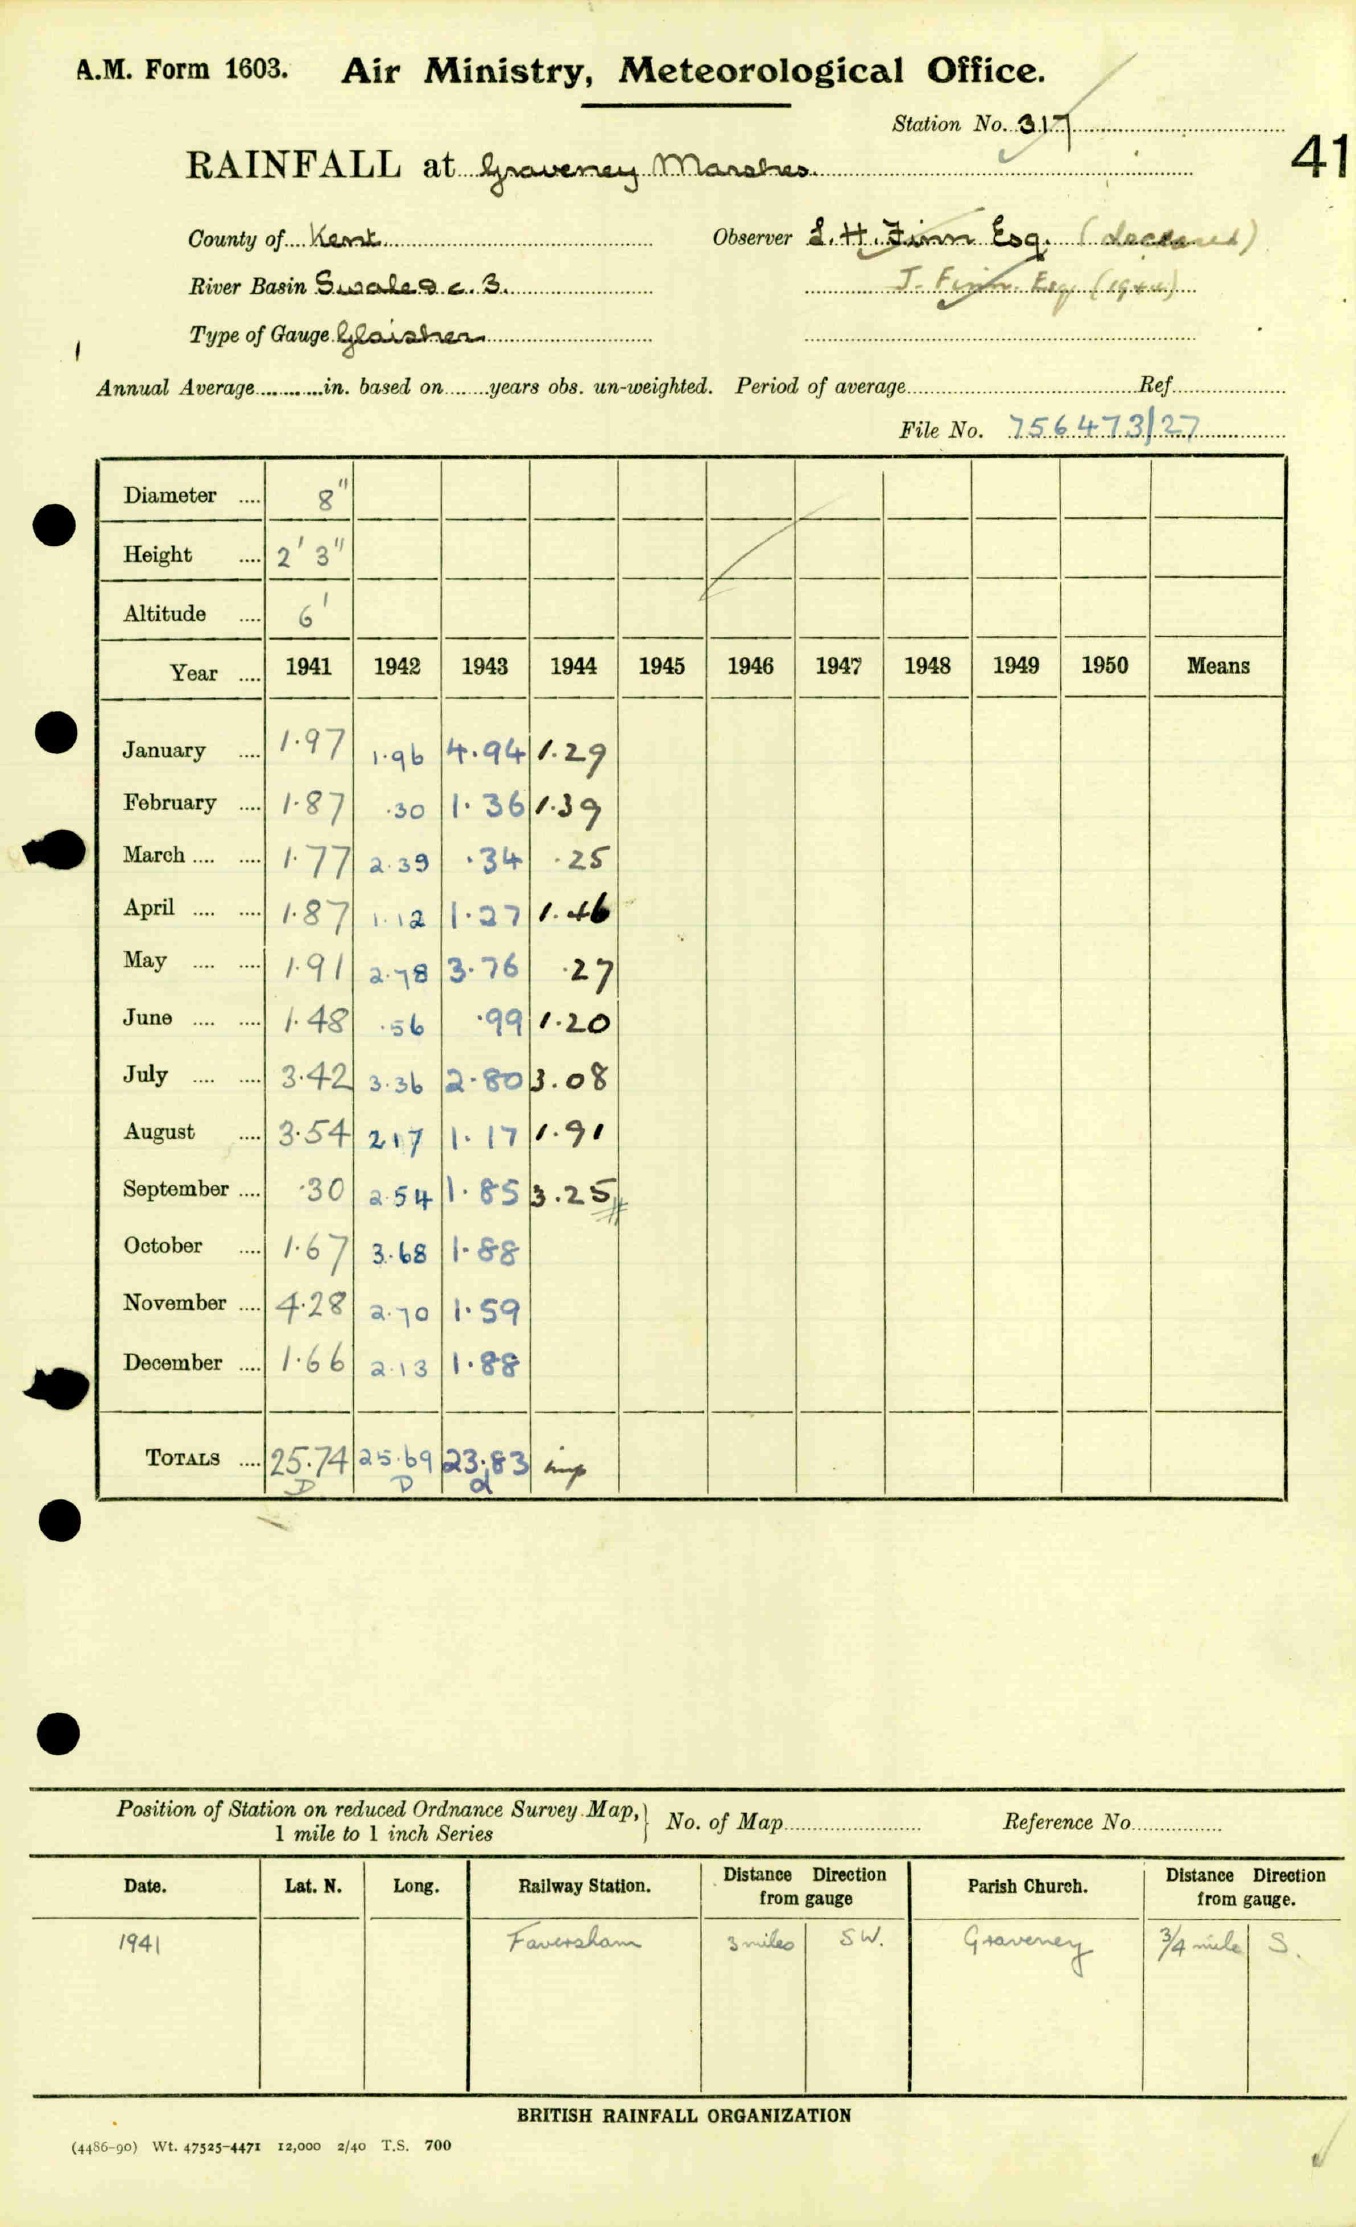 A.M. Form 1603. Air Ministry, Meteorological Office.
Station No. 317
41
RAINFALL at Graveney Marshes.
County of Kent Observer L. H. Finn Esq. (deceased)
River Basin Swale & c. 3. J. Finn Esq (1944)
Type of Gauge Glaisher
Annual Average in. based on years obs. un-weighted. Period of average Ref
File No. 756473/27
Diameter .... 8"
Height .... 2' 3"
Altitude .... 6'
Year .... 1941 1942 1943 1944 1945 1946 1947 1948 1949 1950 Means
January .... 1.97 1.96 4.94 1.29
February .... 1.87 .30 1.36 1.39
March .... .... 1.77 2.39 .34 .25
April .... .... 1.87 1.12 1.27 1.46
May .... .... 1.91 2.78 3.76 .27
June .... .... 1.48 .56 .99 1.20
July .... .... 3.42 3.36 2.80 3.08
August .... 3.54 2.17 1.17 1.91
September .... .30 2.54 1.85 3.25
October .... 1.67 3.68 1.88
November .... 4.28 2.70 1.59
December .... 1.66 2.13 1.88
TOTALS .... 25.74 25.69 23.83 imp
D D d
Position of Station on reduced Ordnance Survey Map,} No. of Map Reference No
1 mile to 1 inch Series
Date. Lat. N. Long. Railway Station. Distance Direction from gauge Parish Church. Distance Direction from gauge.
1941 Faversham 3 miles SW. Graveney 3/4 mile S.
BRITISH RAINFALL ORGANIZATION
(4486-90) Wt. 47525-4471 12,000 2/40 T.S. 700